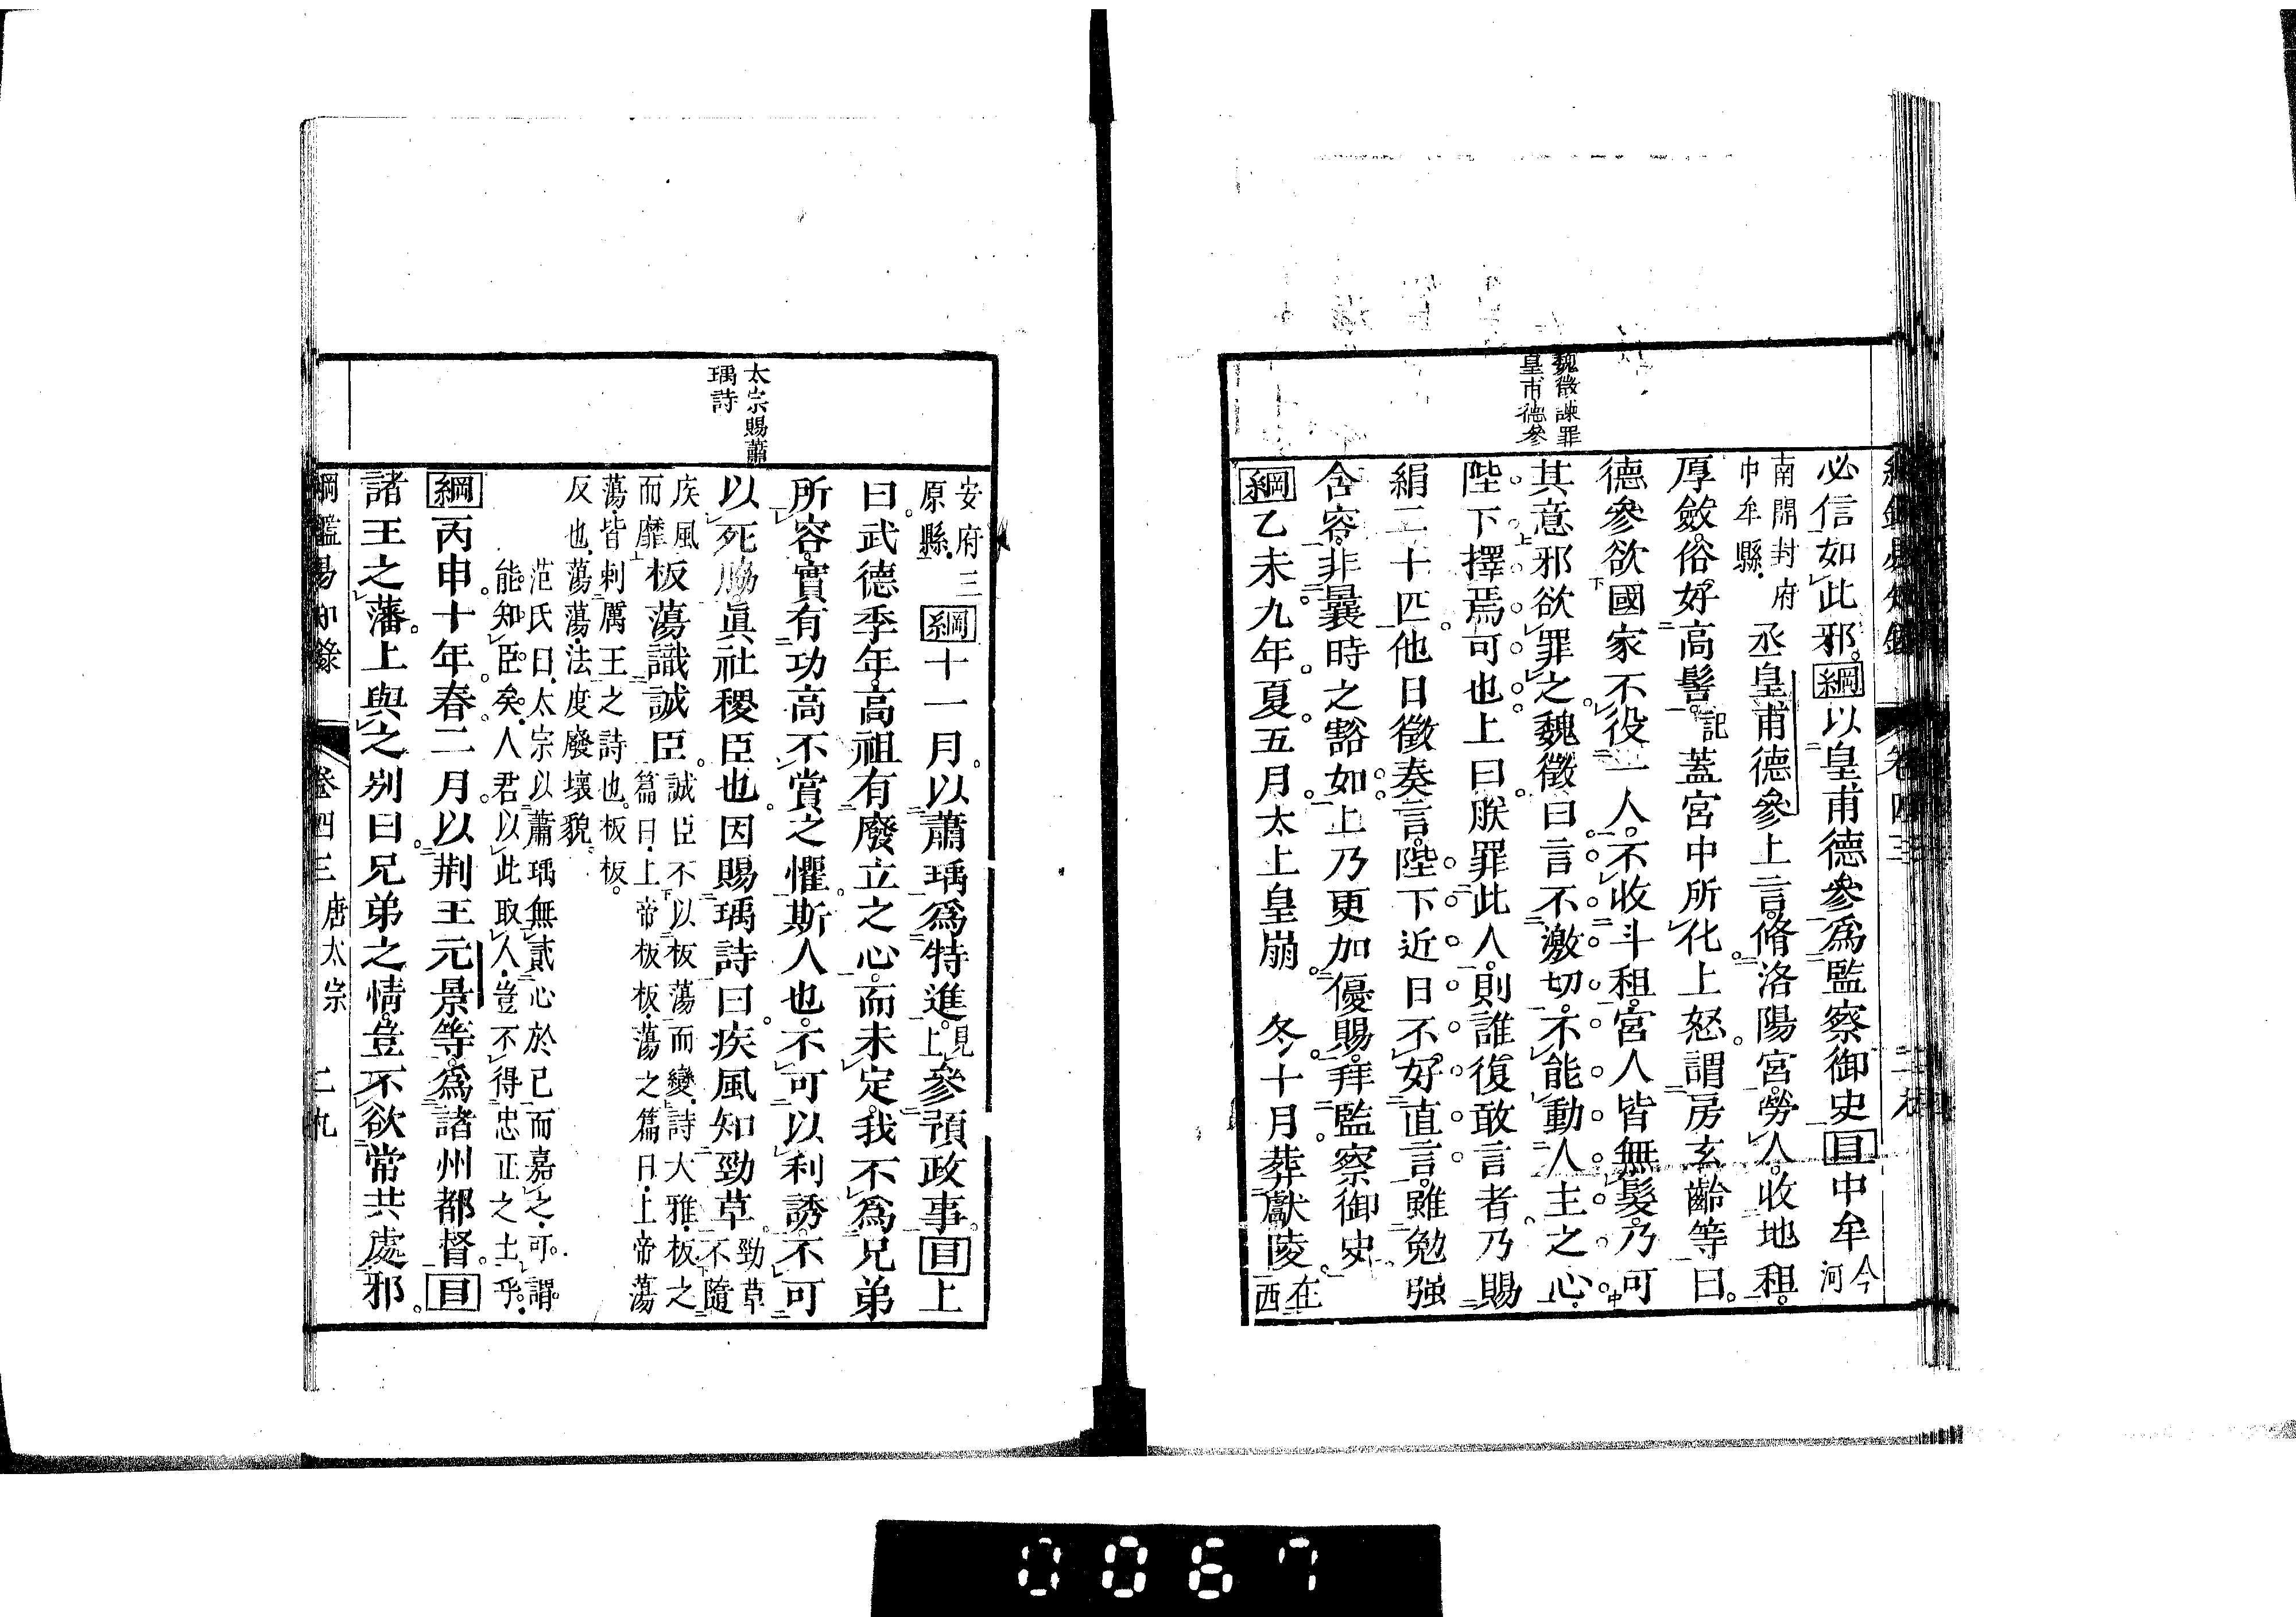 魏徵諫罪
皇甫德參
必信如此邪綱以皇甫德參爲監察御史目中牟今河
南開封府
中牟縣丞皇甫德參上言脩洛陽宮勞人收地租
厚斂俗好高髻記蓋宮中所化上怒謂房玄齡等曰
德參欲國家不役一人不收斗租宮人皆無髮乃可
其意邪欲罪之魏徵曰言不激切不能動人主之心
陛下擇焉可也上曰朕罪此人則誰復敢言者乃賜
絹二十匹他日徵奏言陛下近日不好直言雖勉强
含容非曩時之豁如上乃更加優賜拜監察御史
綱乙未九年夏五月太上皇崩 冬十月葬獻陵在西
太宗賜蕭
瑀詩
安府三
原縣綱十一月以蕭瑀爲特進見上參預政事目上
曰武德季年高祖有廢立之心而未定我不爲兄弟
所容實有功高不賞之懼斯人也不可以利誘不可
以死脅眞社稷臣也因賜瑀詩曰疾風知勁草勁草不隨
疾風
而靡板蕩識誠臣誠臣不以板蕩而變詩大雅板之
篇曰上帝板板蕩之篇曰上帝蕩
蕩皆刺厲王之詩也板板
反也蕩蕩法度廢壞貌
范氏曰太宗以蕭瑀無貳心於己而嘉之可謂
能知臣矣人君以此取人豈不得忠正之士乎
綱丙申十年春二月以荆王元景等爲諸州都督目
諸王之藩上與之別曰兄弟之情豈不欲常共處邪
綱鑑易知錄 卷四三 唐太宗 二九
0067